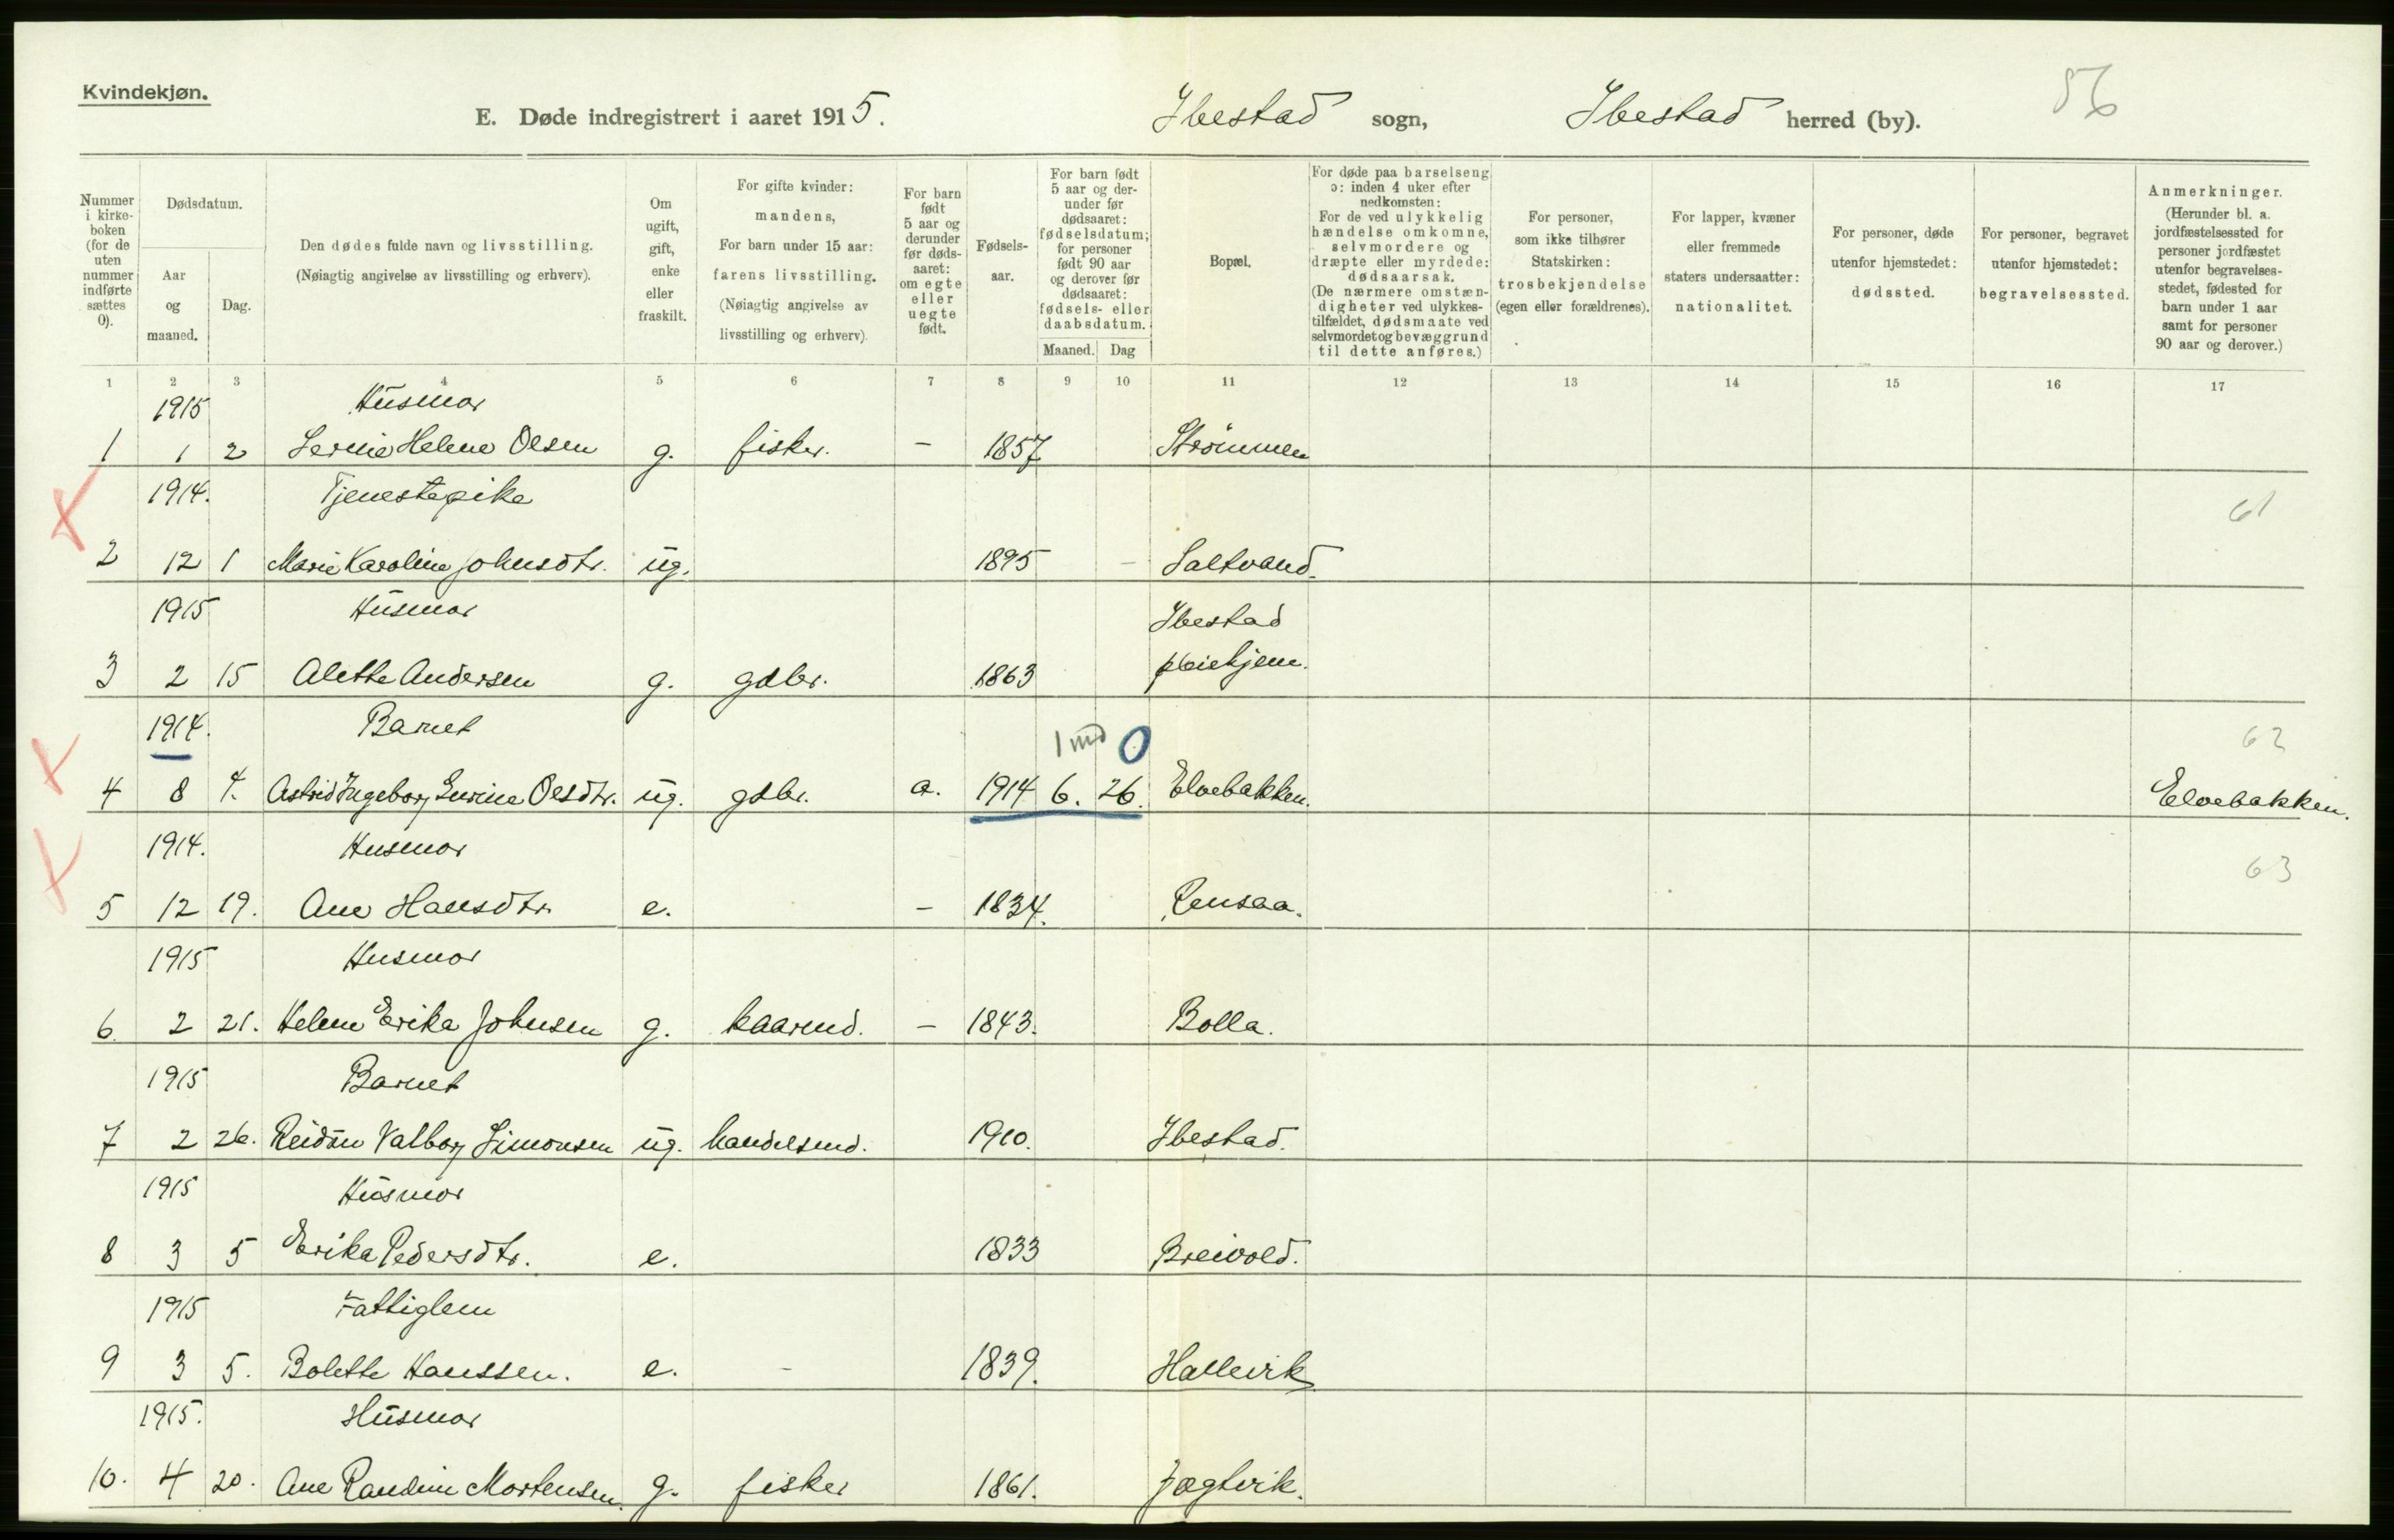 Kvindekjøn.
E. Døde indregistrert i aaret 1915. Ibestad sogn, Ibestad herred (by). 56
Nummer i kirke-boken (for de uten nummer indførte sættes 0).
Dødsdatum.
Aar og maaned.
Dag.
Den dødes fulde navn og livsstilling.
(Nøiagtig angivelse av livsstilling og erhverv).
Om ugift, gift, enke eller fraskilt.
For gifte kvinder: mandens,
For barn under 15 aar: farens livsstilling.
(Nøiagtig angivelse av livsstilling og erhverv).
For barn født 5 aar og derunder før døds-aaret: om egte eller uegte født.
Fødsels-aar.
For barn født 5 aar og der-under før dødsaaret: fødselsdatum; for personer født 90 aar og derover før dødsaaret: fødsels- eller daabsdatum.
Maaned. Dag
Bopæl.
For døde paa barselseng ɔ: inden 4 uker efter nedkomsten:
For de ved ulykkelig hændelse omkomne, selvmordere og dræpte eller myrdede: dødsaarsak.
(De nærmere omstæn-digheter ved ulykkes-tilfældet, dødsmaate ved selvmordet og bevæggrund til dette anføres.)
For personer, som ikke tilhører Statskirken: trosbekjendelse (egen eller forældrenes).
For lapper, kvæner eller fremmede staters undersaatter: nationalitet.
For personer, døde utenfor hjemstedet: dødssted.
For personer, begravet utenfor hjemstedet: begravelsessted.
Anmerkninger.
(Herunder bl. a. jordfæstelsessted for personer jordfæstet utenfor begravelses-stedet, fødested for barn under 1 aar samt for personer 90 aar og derover.)
1 2 3 4 5 6 7 8 9 10 11 12 13 14 15 16 17
1915 Husmor
1 1 2 Helene Olsen g. fisker. – 1857 Strømmen
1914. Tjenestepike 61
2 12 1 Marie Karoline Johnsdtr. ug. 1895 – Saltvand.
1915 Husmor Ibestad
3 2 15 Alette Andersen g. gdbr. 1863 pleiehjem.
1914. Barnet 1 md 0 62
4 8 4. Astrid Ingeborg Olsdtr. ug. gdbr. a. 1914 6. 26. Elvebakken. Elvebakken.
1914. Husmor 63
5 12 19. Ane Hansdtr. e. – 1834. Rensaa.
1915 Husmor
6. 2 21. Helene Erika Johnsen g. kaarmd. – 1843. Bolla.
1915 Barnet
7 2 26. Reidun Valborg Simonsen ug. handelsmd. 1910. Ibestad.
1915 Husmor
8 3 5 Erika Pedersdtr. e. 1833 Breivold.
1915 Fattiglem
9 3 5. Bolette Hanssen. e. – 1839. Hallevik
1915. Husmor
10. 4 20. Ane Randine Mortensen. g. fisker 1861. Jægtvik.